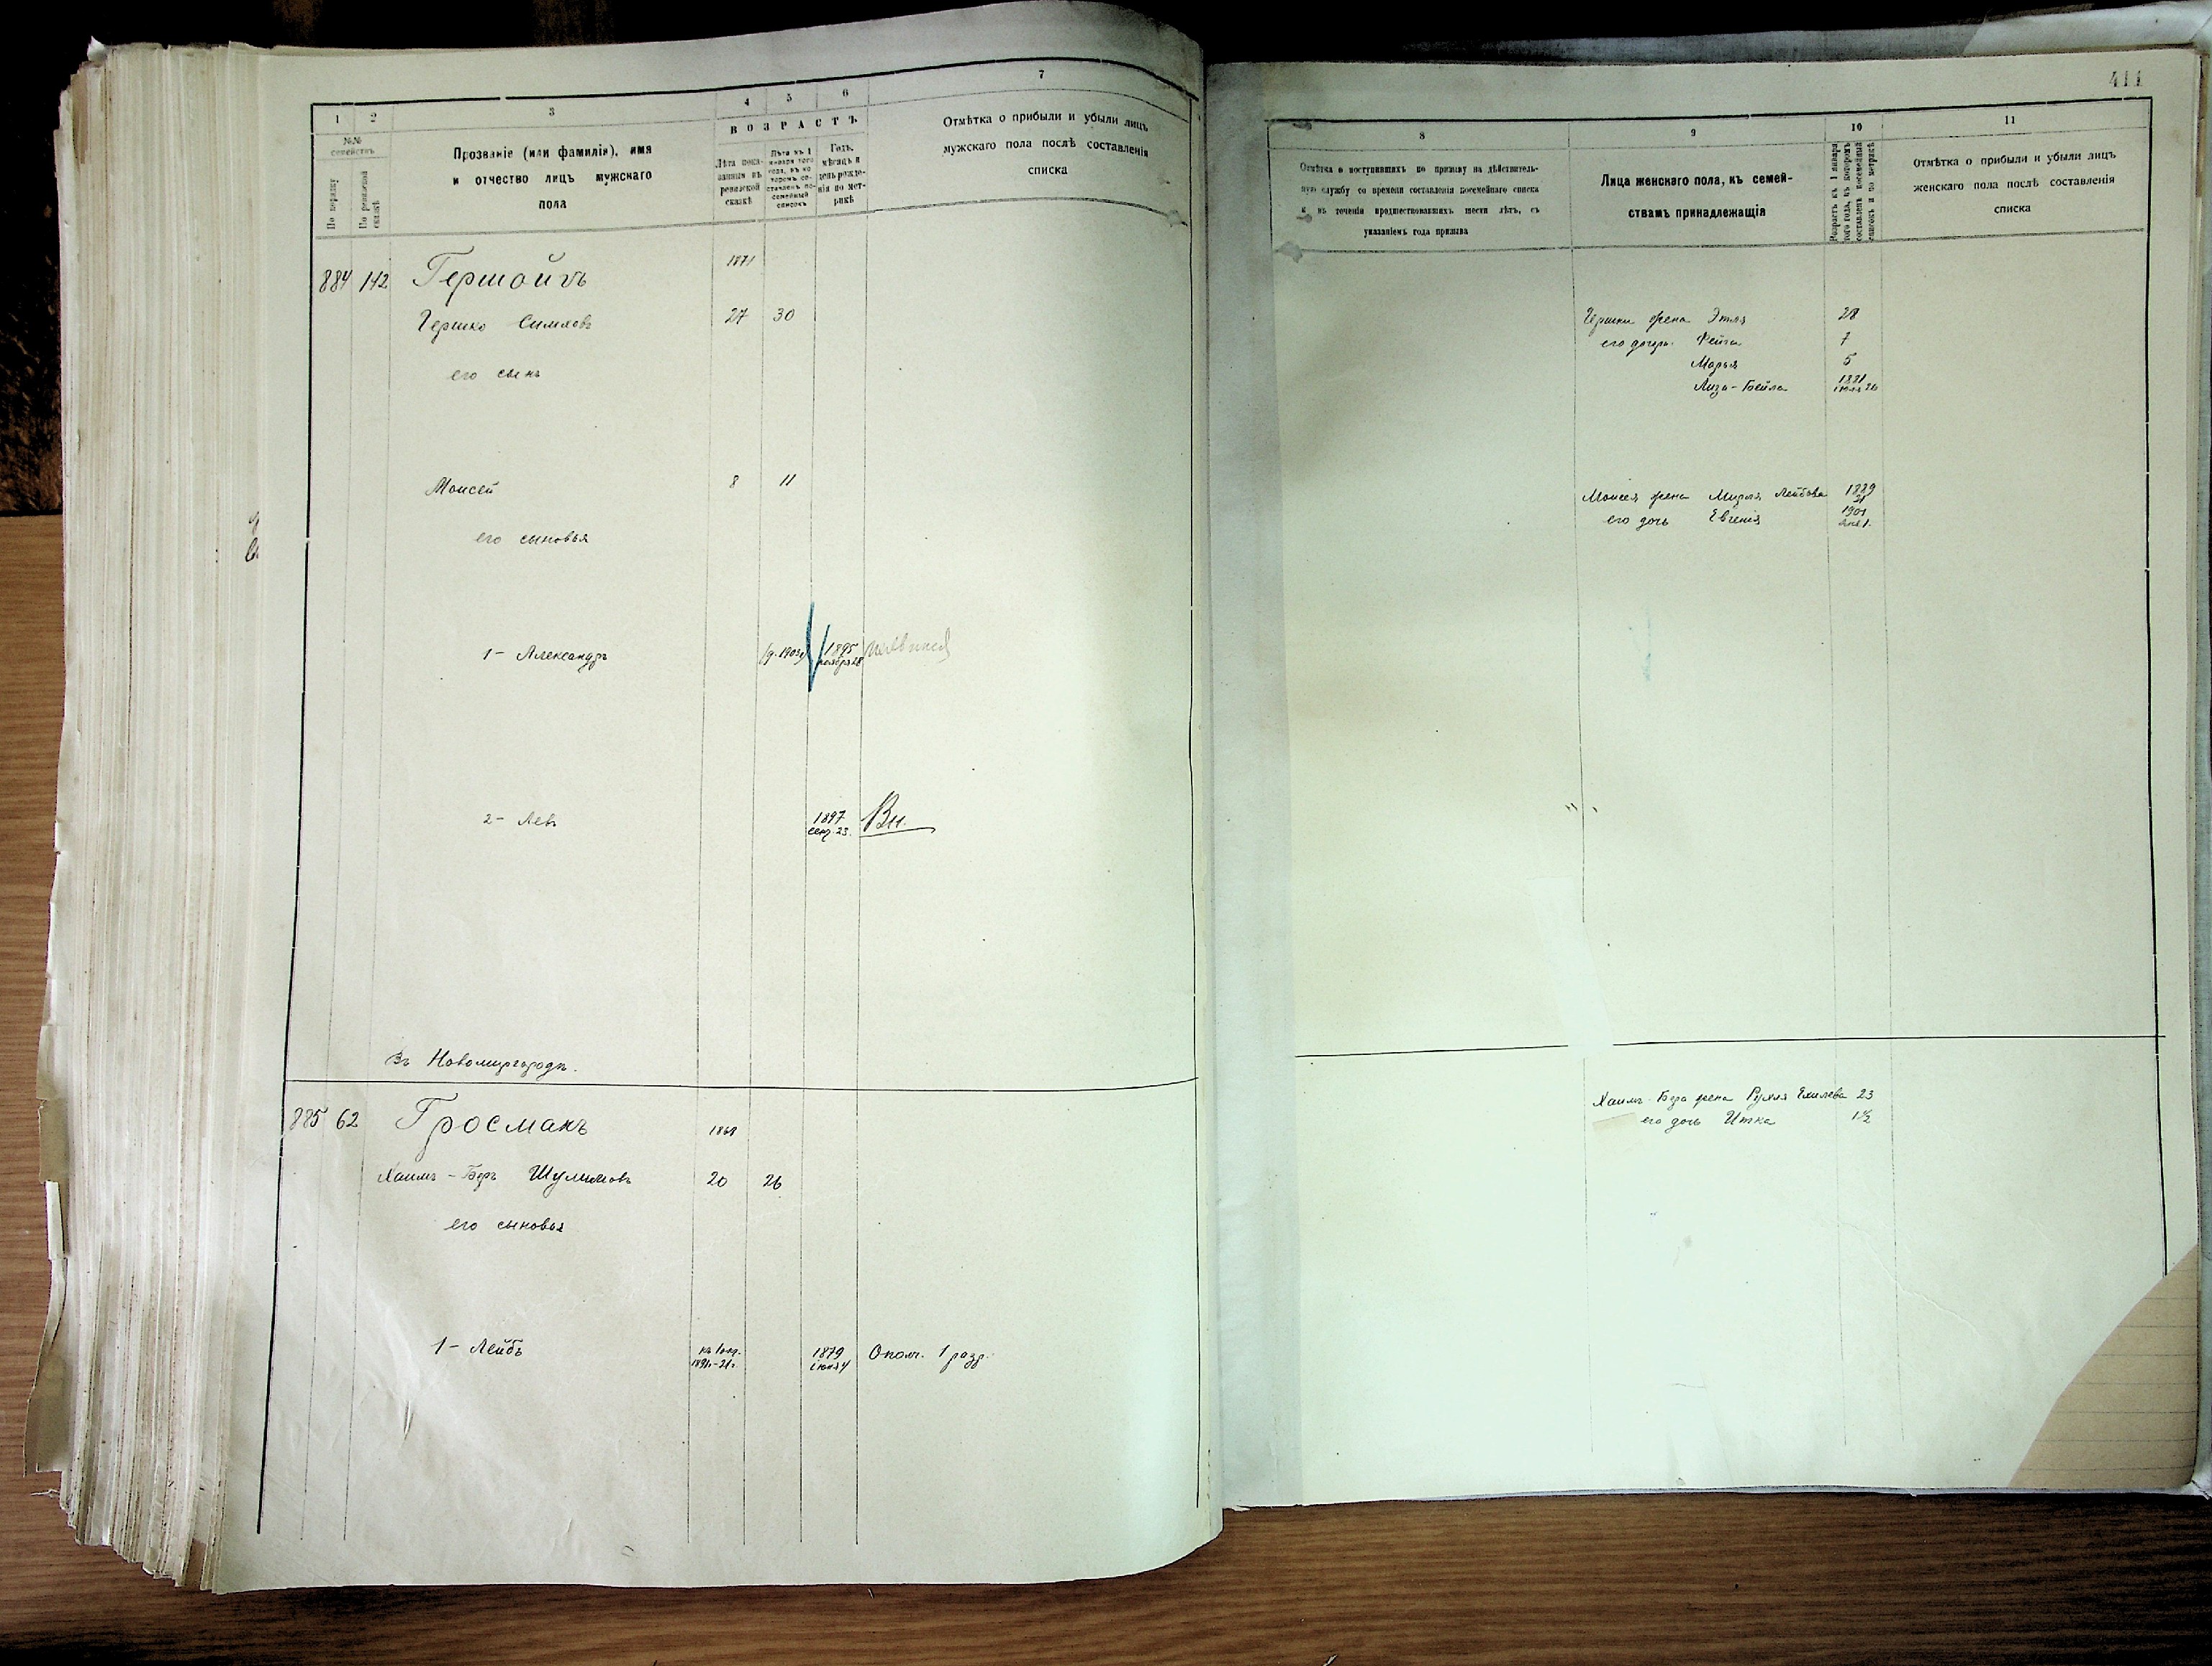 411
1 2 3 4 5 6 7
№№ семействъ
По порядку
По ревизской сказкѣ
Прозваніе (или фамилія), имя
и отчество лицъ мужскаго
пола
ВОЗРАСТЪ
Лѣта пока-
занныя въ
ревизской
сказкѣ
Лѣта къ 1
января того
года, въ ко
торомъ со-
ставленъ по-
семейный
списокъ
Годъ,
мѣсяцъ и
день рожде-
нія по мет-
рикѣ
Отмѣтка о прибыли и убыли лицъ
мужскаго пола послѣ составленія
списка
884 142 Гершойгъ 1871
Гершко Симховъ 27 30
его сынъ
Моисей 8 11
его сыновья
1 - Александръ 1895 ноября 28
2 - Левъ 1897 сент. 23. Вн.
Въ Новомиргородѣ.
885 62 Гросманъ 1868
Хаимъ-Беръ Шулимовъ 20 26
его сыновья
1 - Лейбъ 1879 іюня 4 Ополч. 1 разр.
8 9 10 11
Отмѣтка о поступившихъ по призыву на дѣйствитель-
ную службу со времени составленія посемейнаго списка
и въ теченіи предшествовавшихъ шести лѣтъ, съ
указаніемъ года призыва
Лица женскаго пола, къ семей-
ствамъ принадлежащія
Возрастъ къ 1 января
того года, въ которомъ
составленъ посемейный
списокъ и по метрикѣ
Отмѣтка о прибыли и убыли лицъ
женскаго пола послѣ составленія
списка
Гершки жена Этля 28
его дочери: Фейга 7
Марья 5
Лиза-Бейла 1881
Моисея жена Мирля Лейбова 1889
его дочь Евгенія 1901
Хаимъ-Бера жена Рухля Ехилева 23
его дочь Итка 1 1/2